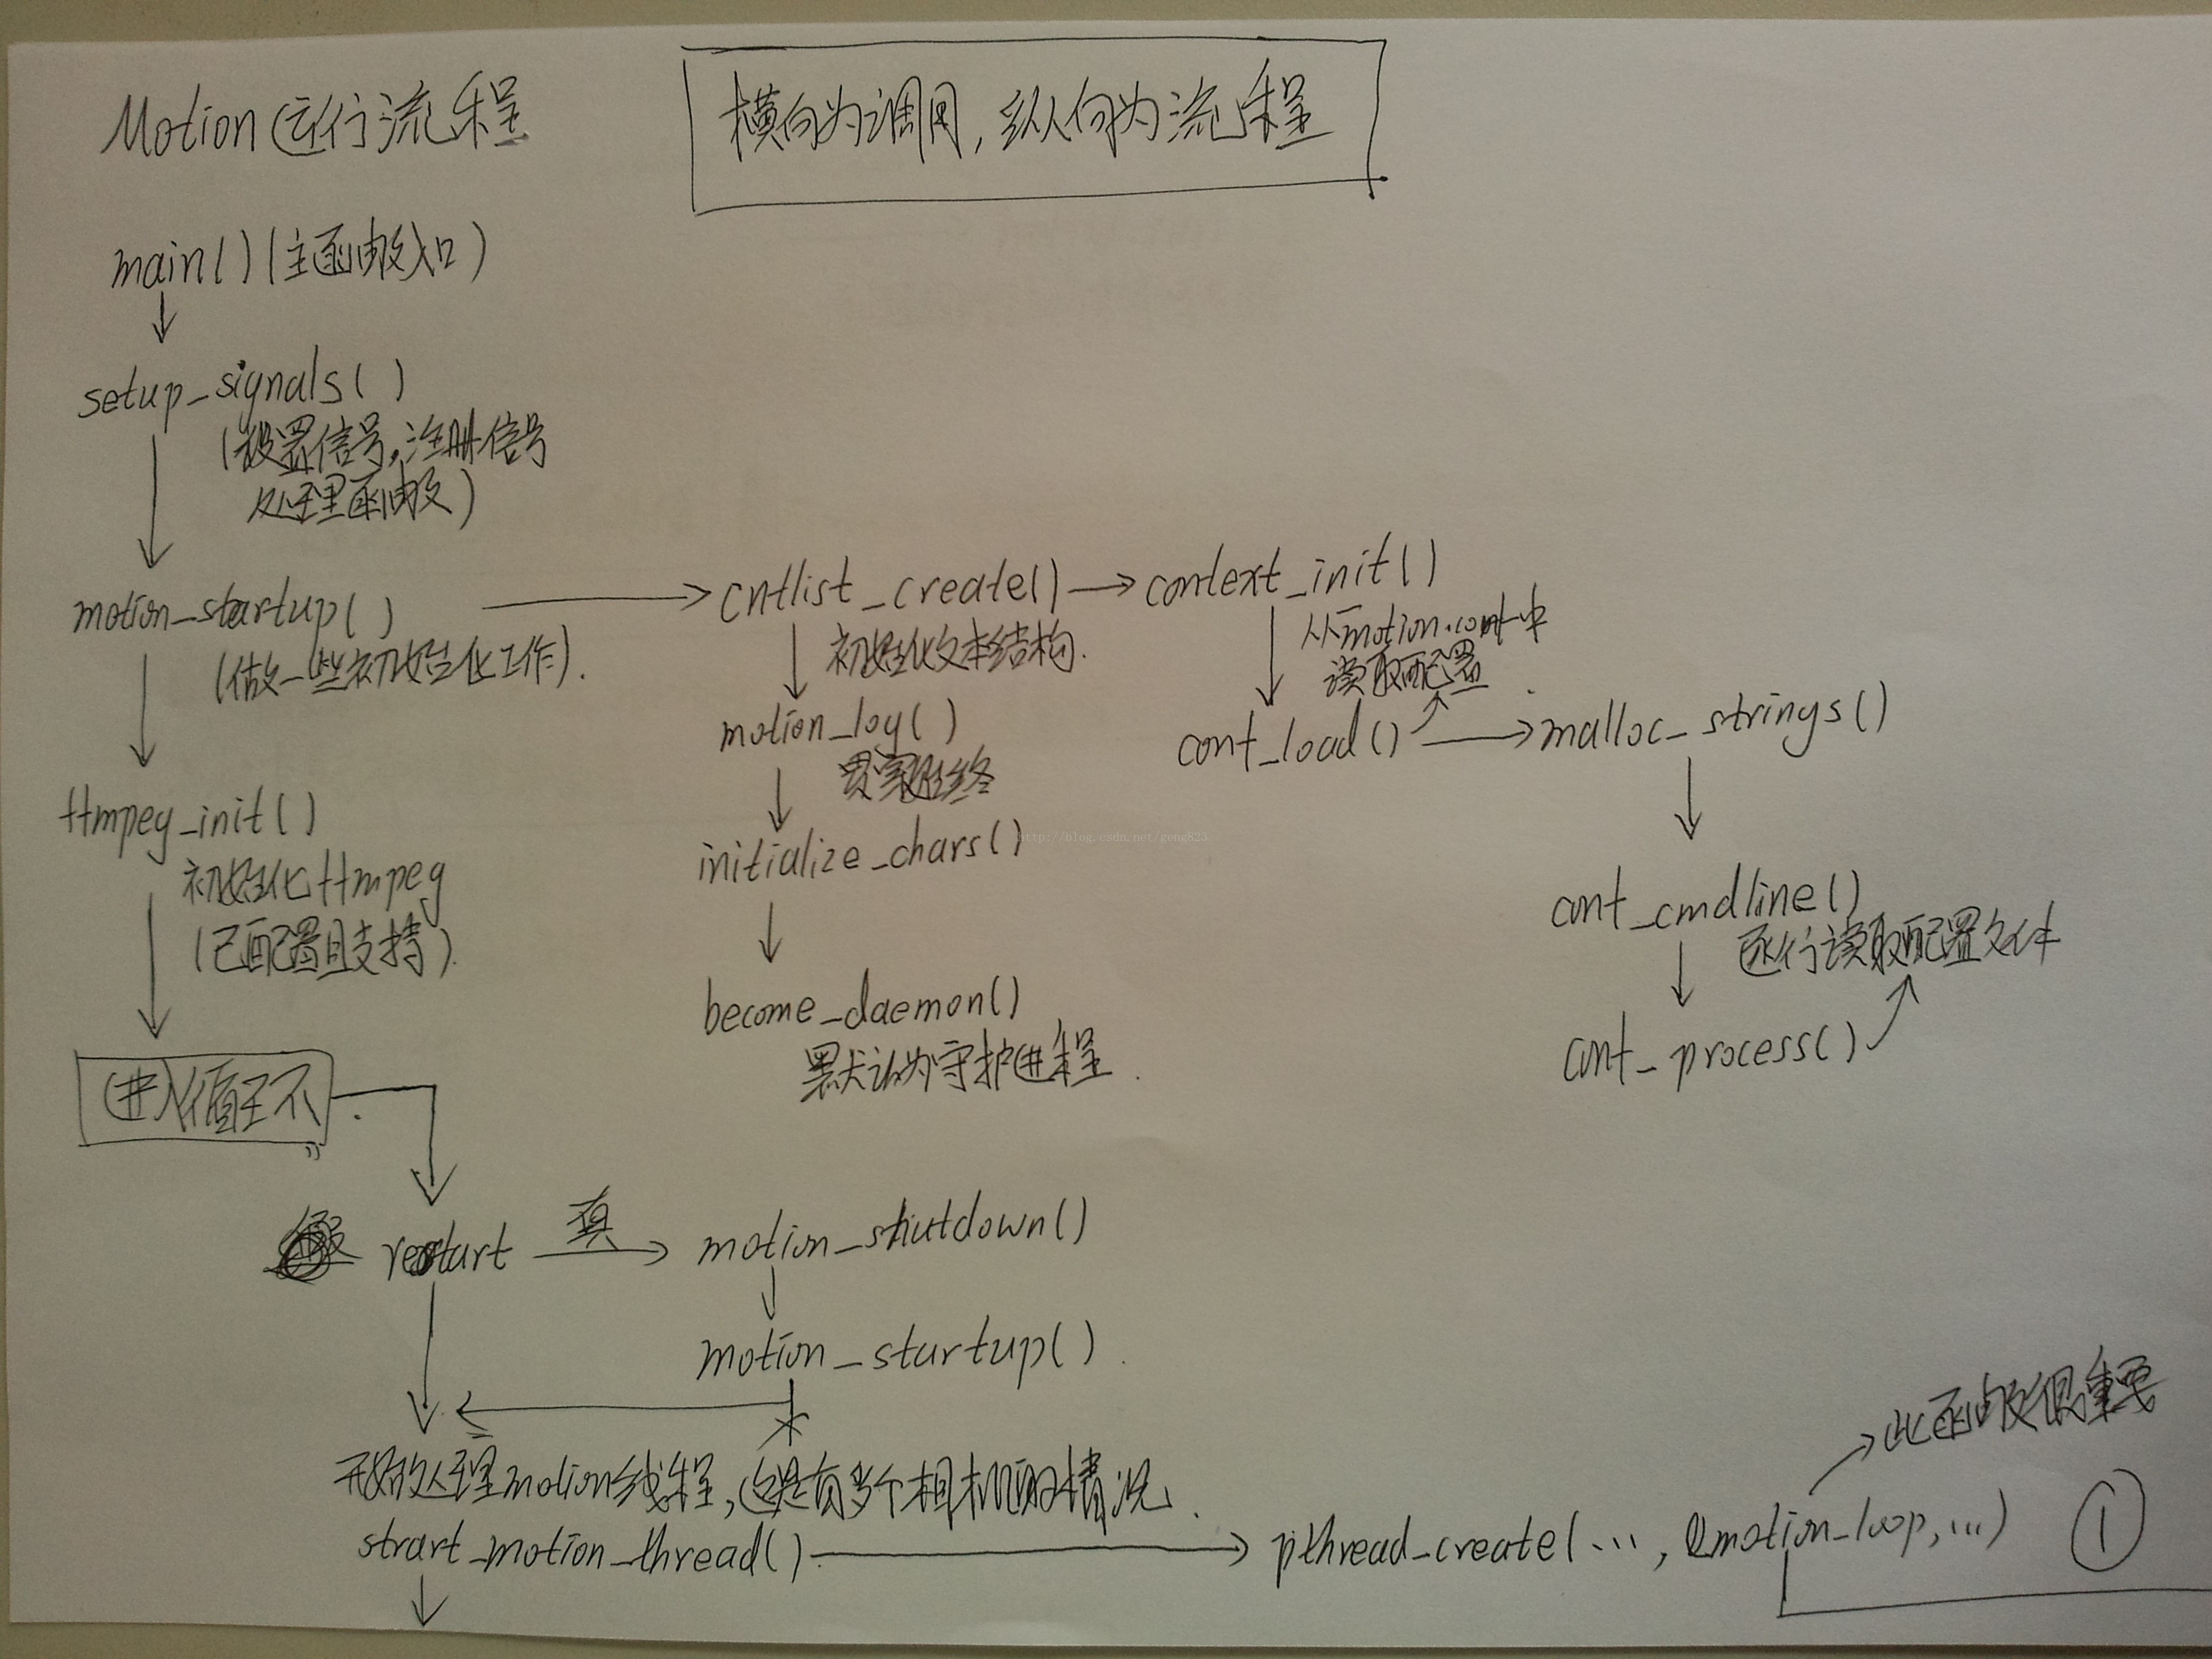 Motion运行流程
横向为调用,纵向为流程
main()(主函数入口)
setup_signals()
(设置信号,注册信号
处理函数)
motion_startup()
(做一些初始化工作).
cntlist_create()
初始化文本结构.
context_init()
从motion.conf中
读取配置
motion_log()
贯穿始终
conf_load()
malloc_strings()
ffmpeg_init()
初始化ffmpeg
(已配置且支持).
initialize_chars()
http://blog.csdn.net/geng823
conf_cmdline()
逐行读取配置文件
become_daemon()
默认为守护进程.
conf_process()
进入循环
restart
真
motion_shutdown()
motion_startup().
开始处理motion线程,这是有多个相机的情况.
此函数很重要
strart_motion_thread()
pthread_create(...,&motion_loop,...)
①